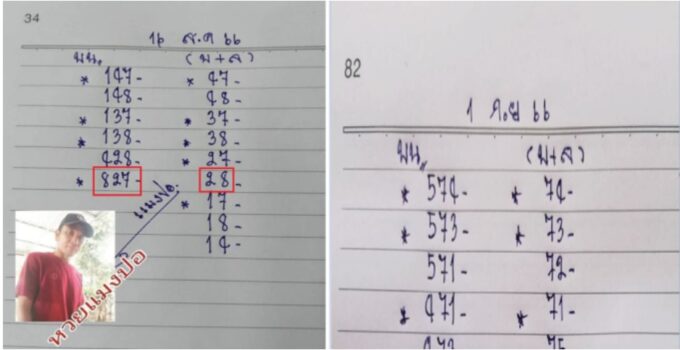 34
16 ส.ค 66
บน. (บ+ล)
* 147- * 47-
148- 48-
* 137- * 37-
* 138- * 38-
428- * 27-
* 827- 28-
* 17-
18-
14-
แมงปอ.
หวยแมงปอ
82
1 ก.ย 66
บน. (บ+ล)
* 574- * 74-
* 573- * 73-
571- 72-
* 471- * 71-